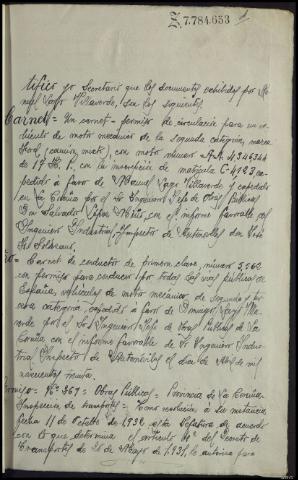 7.784.633
tifico yo Secretario que los documentos exhibidos por Ma-
nuel Lage Villaverde, son los siguientes
Carnet = Un carnet = permiso de circulación para un ve-
hículo de motor mecánico de la segunda categoría, marca
Ford, con motor número A.A. 4344344
de 17 H. P. con la inscripción de matrícula C-4923 ex-
pedido a favor de Manuel Lage Villaverde y expedido
en La Coruña por el Sr Ingeniero Jefe de Obras Públicas
Don Salvador López, con el informe favorable del
Ingeniero Industrial Inspector de Automóviles don José
= Carnet de conductor de primera clase, número 3,262
con permiso para conducir por todas las vías públicas de
España, vehículos de motor mecánico, de segunda y ter-
cera categoría, expedido a favor de Lage Villa-
verde por el Sr Ingeniero Jefe de Obras Públicas de La
Coruña con el informe favorable de Sr Ingeniero Indus-
trial Inspector de Automóviles el día de Abril de mil
novecientos treinta.
Permiso = Nº 369 = Obras Públicas = Provincia de La Coruña
Inspección de transportes = Como resolución a su instancia
fecha 11 de Octubre de 1930 esta Jefatura de acuerdo
con lo que determina el artículo 4º del Decreto de
Transportes de 22 de Mayo de 1931, le autoriza para